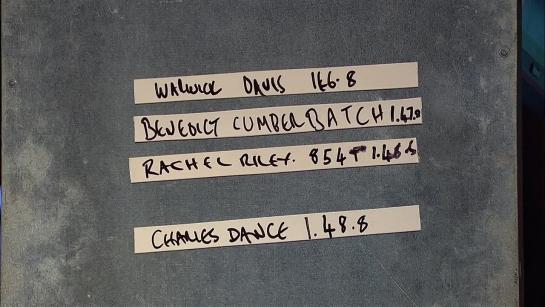 WARWICK DAVIS 1.46.8
BENEDICT CUMBERBATCH 1.47.8
RACHEL RILEY. 1.48.8
CHARLES DANCE 1.48.8